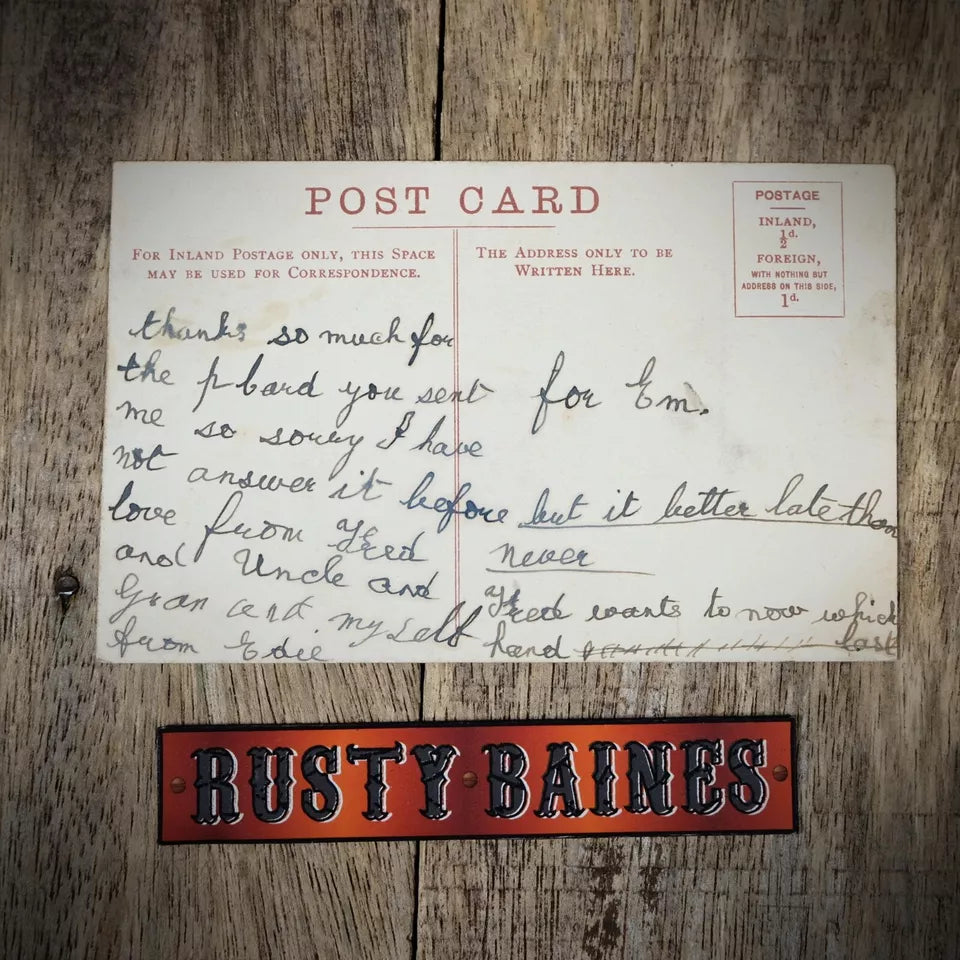 POST CARD
FOR INLAND POSTAGE ONLY, THIS SPACE
MAY BE USED FOR CORRESPONDENCE.
THE ADDRESS ONLY TO BE
WRITTEN HERE.
POSTAGE
INLAND,
½d.
FOREIGN,
WITH NOTHING BUT
ADDRESS ON THIS SIDE,
1d.
thanks so much for
the p bard you sent
me so sorry I have
not answer it before
love from Fred
and Uncle and
Gran and my self
from Edie
for Em.
but it better late than
never
Fred wants to now which
hand last
RUSTY BAINES